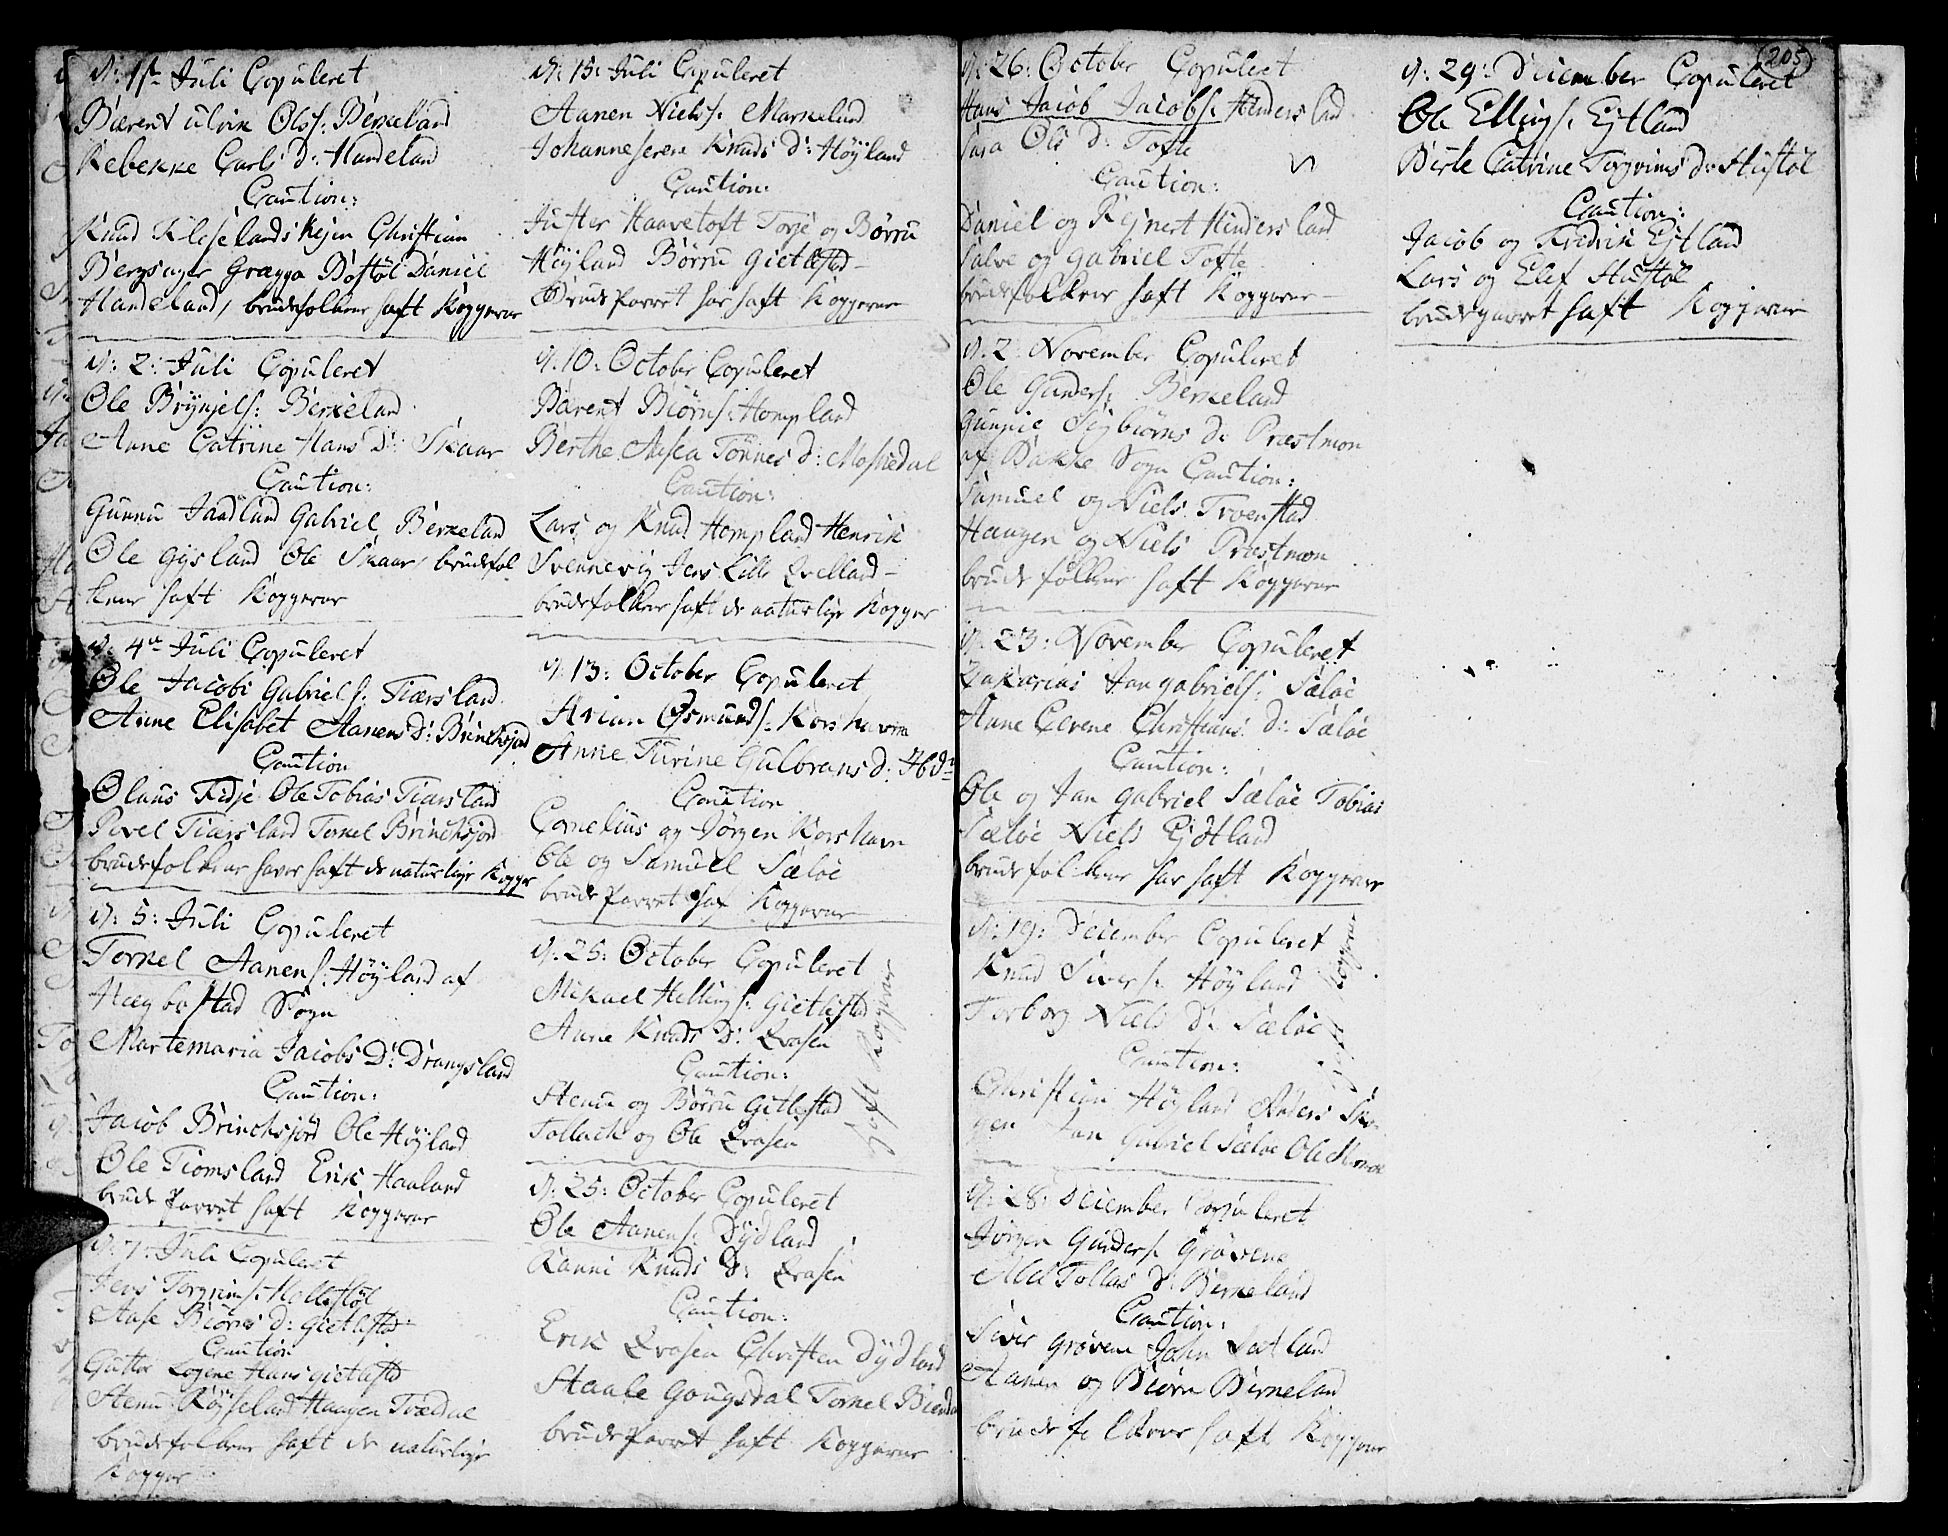 d: 1st Juli Copuleret
Bærent ulvik Olss: Berkeland
Rebekke Carls D: Handeland
Caution:
Knud Christian
Bergsager Græggo Bostøl Daniel
Handeland, brudefolkene haft Koppevac
d: 2: Juli Copuleret
Ole Brynjels: Berkeland
Anne Catrine Hans D: Skaar
Caution:
Gunnu Gabriel Berkeland
Ole Gysland Ole Skaar brudefol
kene haft Koppevac
d: 4de Juli Copuleret
Ole Jacobi Gabriels: Tiærsland
Anne Elisabet Aanens D: Brinchsjord
Caution
Olaus Fidje Ole Tobias Tiærsland
Povel Tiærsland Torkel Brinchsjord
brudefolkene haver haft de naturlige Kopper
d: 5: Juli Copuleret
Torkel Aanens: Høyland af
Hægbostad Sogn
Martemaria Jacobs D: Drangsland
Caution:
Jacob Brinchsjord Ole Høyland
Ole Tiomsland Erik Haaland
brude Parret haft Koppevac
d: 7: Juli Copuleret
Jens Torgrims:
Aase Biørns D: Gietlestad
Caution
Hans Gietlestad
Stenu Haagen Trædal
brudefolkene haft de naturlige
Kopper
d: 15: Juli Copuleret
Aanen Niels: Markelund
Johanneserene Knuds D: Høyland
Caution:
Haavetoft Torje og Børru
Høyland Børru Gietlestad
Brude Parret har haft Koppevac
d: 10: October Copuleret
Bærent Biørns: Hompland
Berthe Aasea Tønnes D: Mosfiedal
Caution:
Lars og Knud Hompland Henrik
Svennevig Jens Lille Qvelland
brudefolkene haft de naturlige Kopper
d: 13: October Copuleret
Arian Osmunds: Korshavn
Anne Turine Gulbrans D: Ibdm
Caution
Cornelius og Jørgen Korshavn
Ole og Samuel Sæløe
brude Parret haf Koppevac
d: 25: October Copuleret
Mikael Hellings: Gietlestad
Anne Knuds D: Qvasen
Caution:
Stenu og Børru Gitlestad
Tollach og Ole Qvasen
haft Koppevac
d: 25: October Copuleret
Ole Aanens: Dydland
Ranni Knuds D: Qvasen
Caution:
Erik Qvasen Christen Dydland
Staale Gougsdal Torkel
brude Parret haft Koppevac
205
d: 26: October Copuleret
Hans Jacob Jacobs: Hindersland
Sara Ols D: Tofte
Caution:
Daniel og Rejnert Hindersland
Salve og Gabriel Tofte
brudefolkene haft Koppevac
d. 2: November Copuleret
Ole Gunders: Berkeland
Gunnil Sigbiørns D: Præstmon
af Bakke Sogn Caution:
Samuel og Niels Troenstad
Haagen og Niels Præstmon
brudefolkene haft Koppevac
d: 23: November Copuleret
Zakarias Jan Gabriels: Sæløe
Anne Elevene Christians D: Sæløe
Caution:
Ole og Jan Gabriel Sæløe Tobias
Sæløe Niels Ejdtland
brudefolkene har haft Koppevac
d: 19: December Copuleret
Knud Sivers: Høyland
Torborg Niels D: Sæløe
haft Koppevac
Caution:
Christian Høyland Anders Sko-
gen Jan Gabriel Sæløe Ole
d: 28: December Copuleret
Jørgen Gunders: Grøvene
Abel Tollas D: Berkeland
Caution:
Siver Grøvene John Sætland
Aanen og Biørn Birkeland
brudefolkene haft Koppevac
d: 29: December Copuleret
Ole Ellings: Ejtland
Birte Catrine Torgrims D: Hustøl
Caution:
Jacob og Fredrik Ejtland
Lars og Elef Hustøl
brudeparret haft Koppevac